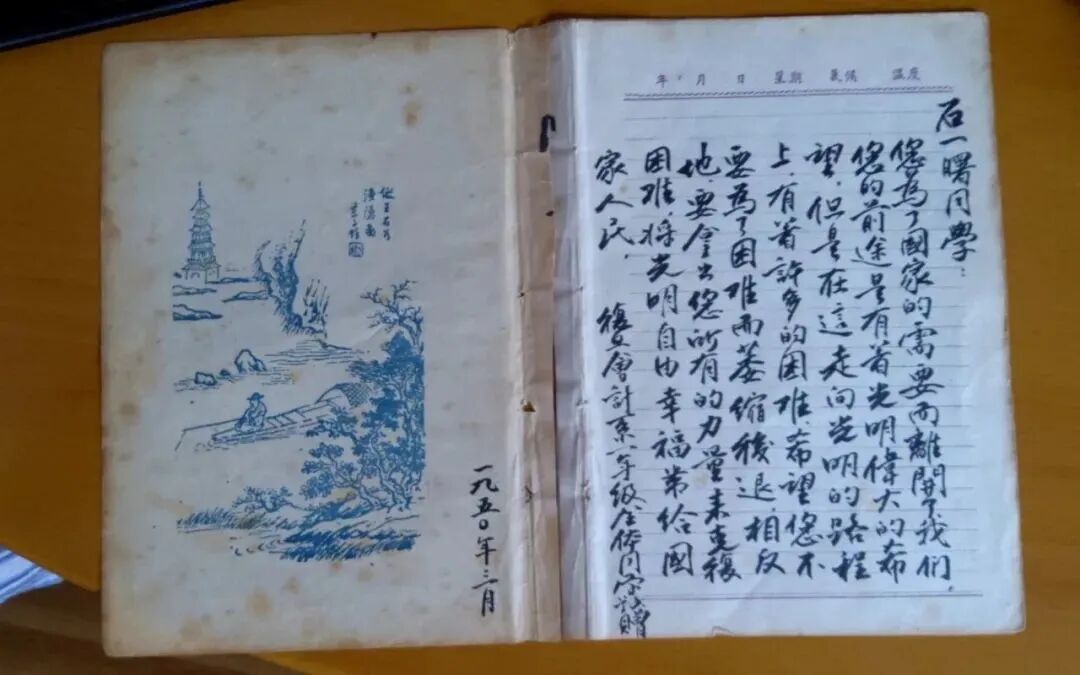 年 月 日 星期 氣候 溫度
石一曙同學：
您為了國家的需要而離開了我們.
您的前途是有着光明偉大的希
望,但是在這走向光明的路程
上,有着許多的困难,希望您不
要為了困难而萎縮後退,相反
地,要拿出您所有的力量来克復
困难,将光明自由幸福带给國
家人民.
復旦會計系一年級全体同学贈
一九五〇年三月